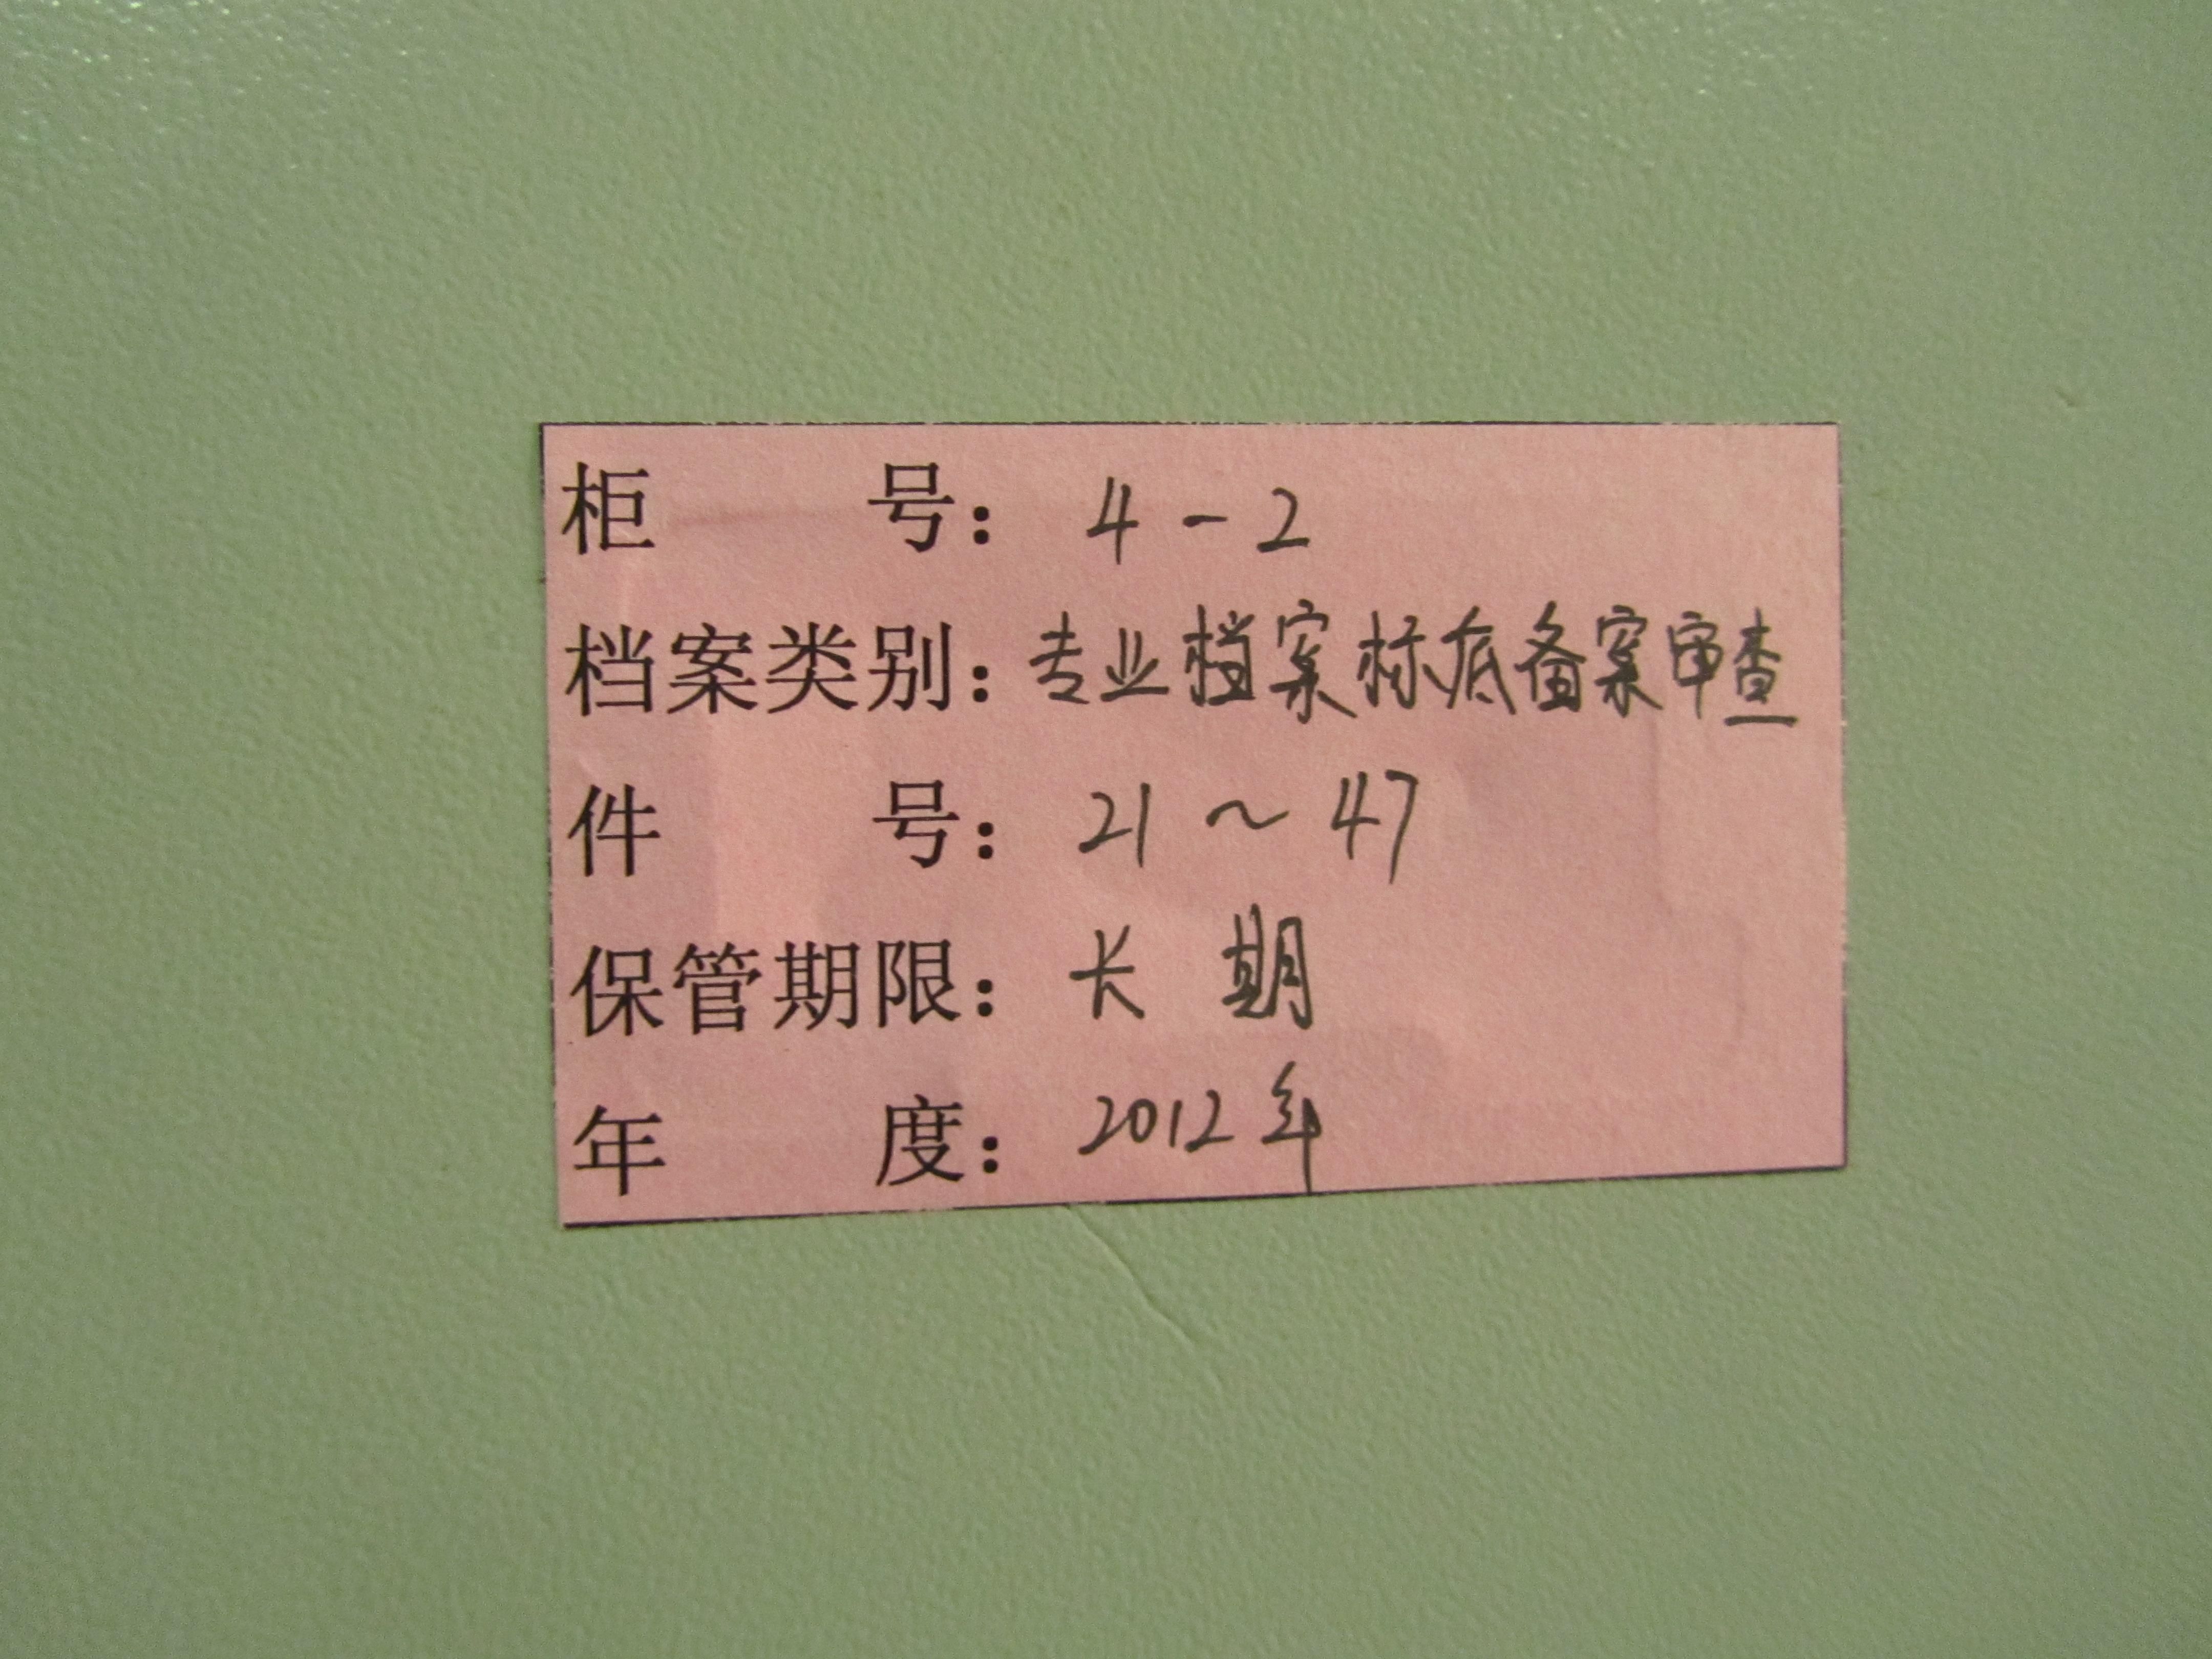 柜 号：4-2
档案类别：专业档案标底备案审查
件 号：21～47
保管期限：长期
年 度：2012年